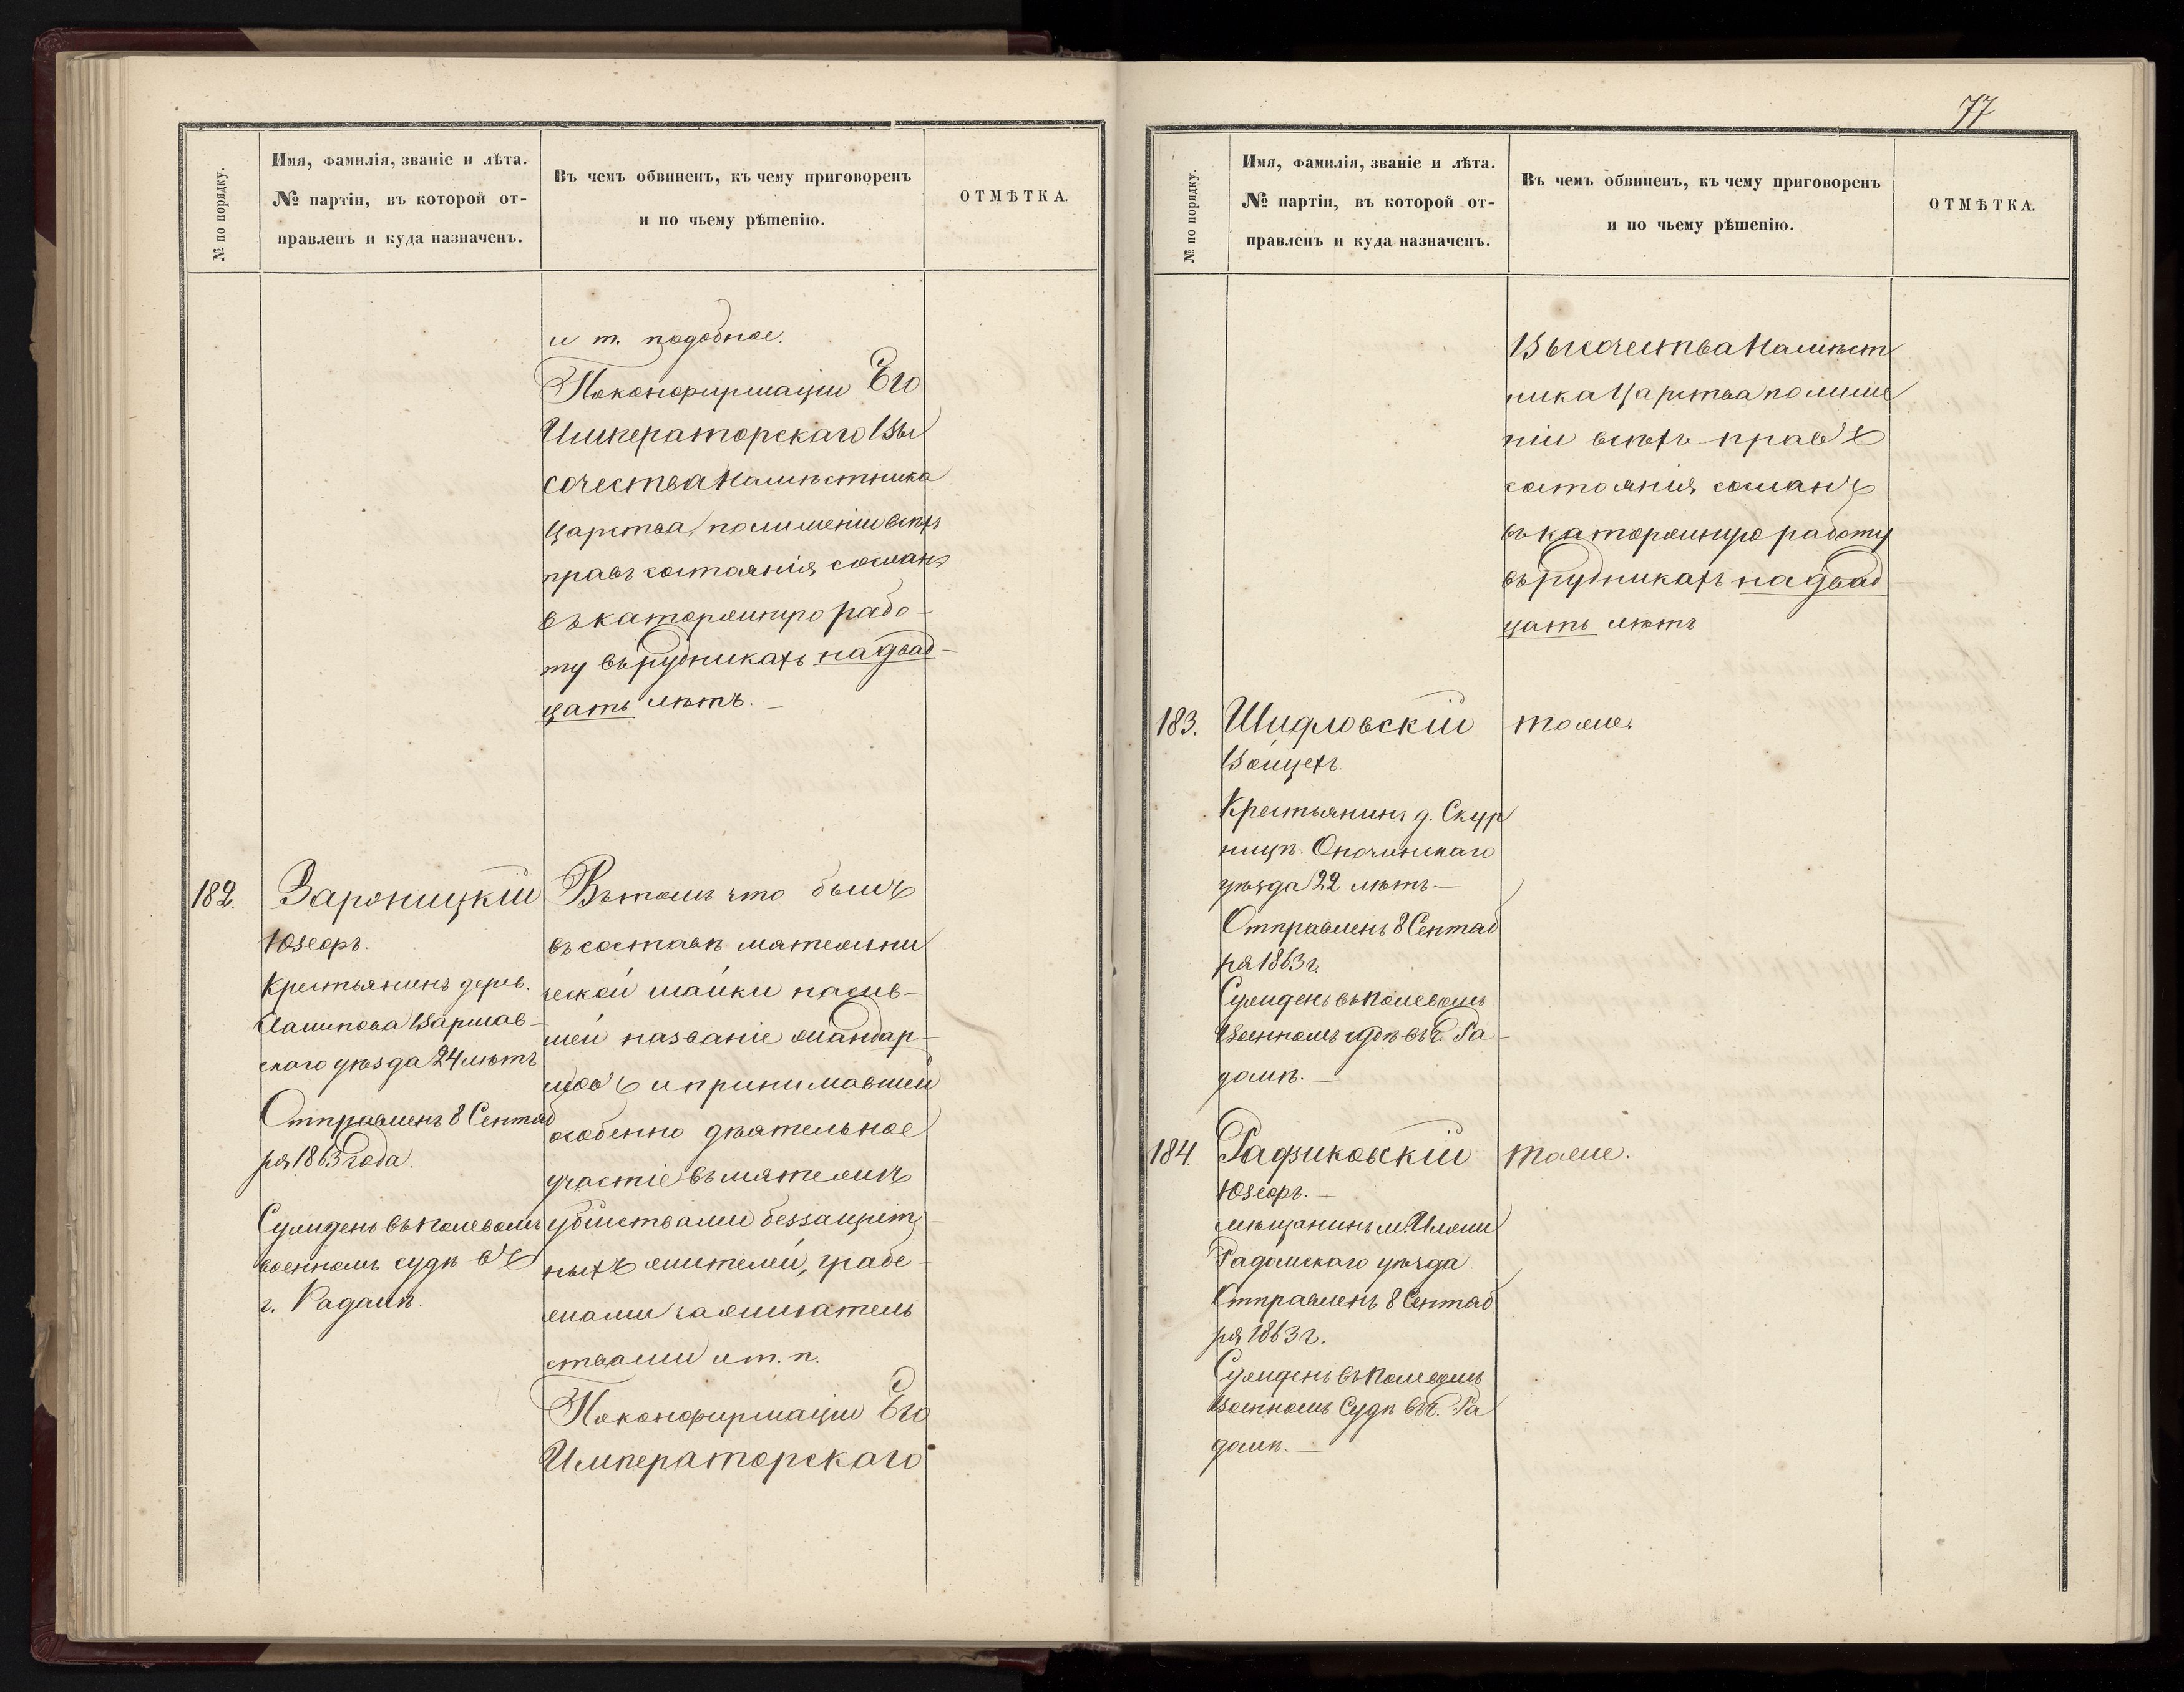 № по порядку.
Имя, фамилія, званіе и лѣта.
№ партіи, въ которой от-
правленъ и куда назначенъ.
Въ чемъ обвиненъ, къ чему приговоренъ
и по чьему рѣшенію.
ОТМѢТКА.
и т. подобное.
По конфирмаціи Его
Императорскаго Вы
сочества Намѣстника
Царства, по лишеніи всѣхъ
правъ состоянія сосланъ
въ каторжную рабо-
ту въ рудникахъ на двад-
цать лѣтъ. –
182.
Зароницкій
Юзефъ.
Крестьянинъ дерев.
Варшав-
скаго уѣзда 24 лѣтъ
Отправленъ 8 Сентяб
ря 1863 года.
Сужденъ въ полевомъ
военномъ судѣ въ
г. Радомѣ.
Въ томъ что былъ
въ составѣ мятежни
ческой шайки носив-
шей названіе жандар-
мовъ и принимавшей
особенно дѣятельное
участіе въ мятежѣ
убійствами беззащит-
ныхъ жителей, грабе-
жами зажигатель
ствами и т. п.
По конфирмаціи Его
Императорскаго
77
№ по порядку.
Имя, фамилія, званіе и лѣта.
№ партіи, въ которой от-
правленъ и куда назначенъ.
Въ чемъ обвиненъ, къ чему приговоренъ
и по чьему рѣшенію.
ОТМѢТКА.
Высочества Намѣст
ника Царства по лише
ніи всѣхъ правъ
состоянія сосланъ
въ каторжную работу
въ рудникахъ на двад-
цать лѣтъ
183.
Шидловскій
тоже.
Войцехъ.
Крестьянинъ д. Скур
ницъ. Опочинскаго
уѣзда 22 лѣтъ –
Отправленъ 8 Сентяб
ря 1863 г.
Сужденъ въ Полевомъ
Военномъ судѣ въ г. Ра-
домѣ. –
184.
Радзиковскій
тоже.
Юзефъ. –
мѣщанинъ м. Илжи
Радомскаго уѣзда.
Отправленъ 8 Сентяб
ря 1863 г.
Сужденъ въ Полевомъ
Военномъ Судѣ въ г. Ра
домѣ. –